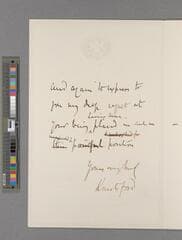 and again to express to
you my deep regret at
having been
your being placed in such an
painful position
Yours very truly